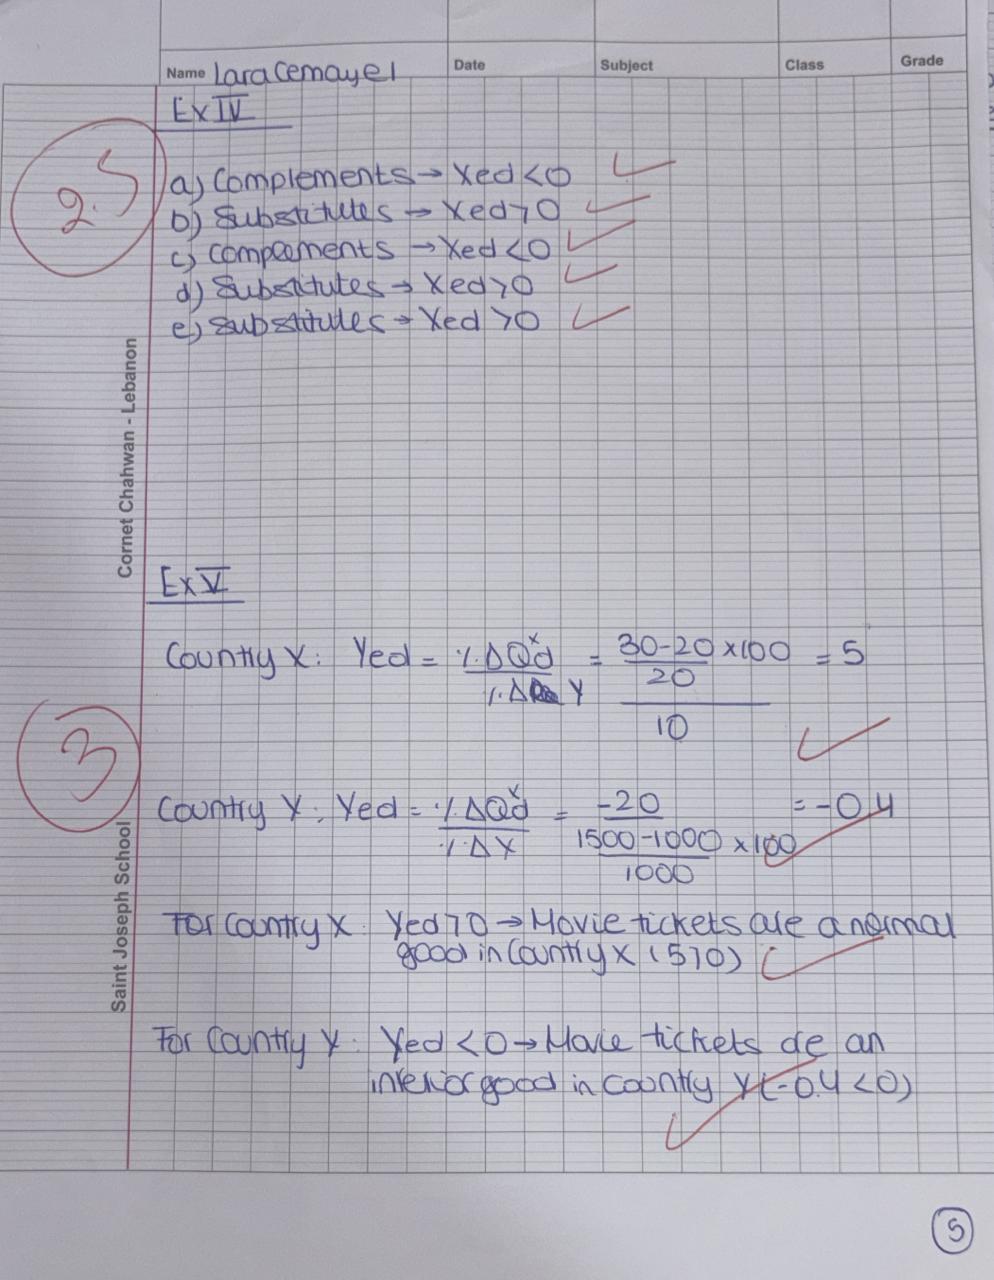 Name Lara Cemayel Date Subject Class Grade
Ex IV
2.5
a) Complements → Xed < 0
b) Substitutes → Xed > 0
c) compements → Xed < 0
d) Substitutes → Xed > 0
e) substitutes → Xed > 0
Cornet Chahwan - Lebanon
Ex V
Country X: Yed = %ΔQd^x / %Δ Y = ((30-20)/20 × 100) / 10 = 5
3
Country Y: Yed = %ΔQd^y / %ΔY = -20 / ((1500-1000)/1000 × 100) = -0.4
For Country X: Yed > 0 → Movie tickets are a normal
good in Country X (5 > 0)
For Country Y: Yed < 0 → Movie tickets are an
inferior good in country Y (-0.4 < 0)
Saint Joseph School
5